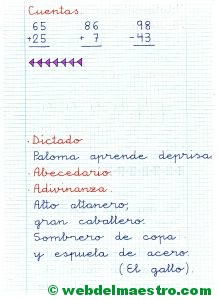 Cuentas.
65 86 98
+25 + 7 -43
· Dictado
Paloma aprende deprisa
· Abecedario.
· Adivinanza.
Alto altanero;
gran caballero.
Sombrero de copa
y espuela de acero.
(El gallo).
© webdelmaestro.com